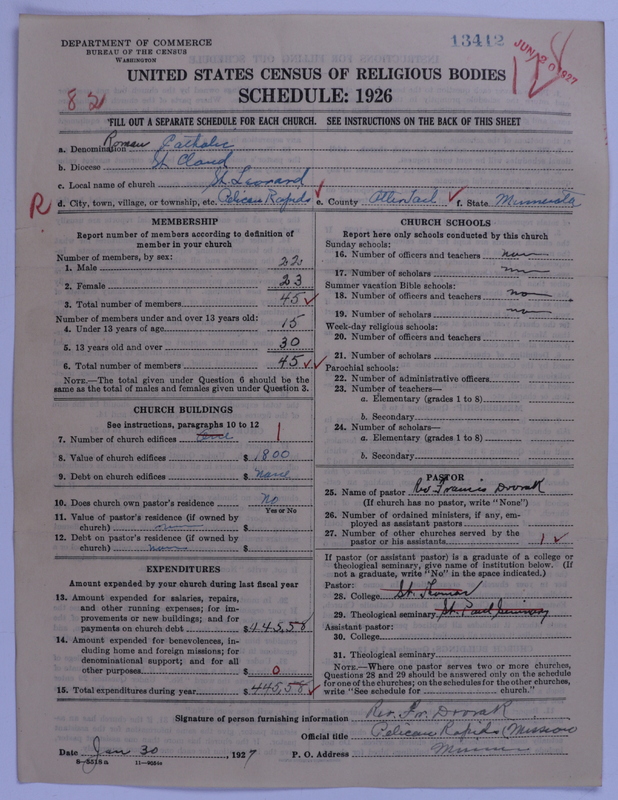 DEPARTMENT OF COMMERCE
BUREAU OF THE CENSUS
WASHINGTON
13412
JUN 20 1927
UNITED STATES CENSUS OF RELIGIOUS BODIES
SCHEDULE: 1926
82
FILL OUT A SEPARATE SCHEDULE FOR EACH CHURCH. SEE INSTRUCTIONS ON THE BACK OF THIS SHEET
a. Denomination Roman Catholic
b. Diocese St Cloud
c. Local name of church St Leonard
R
d. City, town, village, or township, etc. Pelican Rapids e. County Otter Tail f. State Minnesota
MEMBERSHIP
Report number of members according to definition of
member in your church
Number of members, by sex:
1. Male 22
2. Female 23
3. Total number of members 45
Number of members under and over 13 years old:
4. Under 13 years of age 15
5. 13 years old and over 30
6. Total number of members 45
NOTE.—The total given under Question 6 should be the
same as the total of males and females given under Question 3.
CHURCH BUILDINGS
See instructions, paragraphs 10 to 12
7. Number of church edifices 1
8. Value of church edifices $ 1800
9. Debt on church edifices $ None
10. Does church own pastor's residence No
Yes or No
11. Value of pastor's residence (if owned by
church) $
12. Debt on pastor's residence (if owned by
church) $
EXPENDITURES
Amount expended by your church during last fiscal year
13. Amount expended for salaries, repairs,
and other running expenses; for im-
provements or new buildings; and for
payments on church debt $ 445,58
14. Amount expended for benevolences, in-
cluding home and foreign missions; for
denominational support; and for all
other purposes $ 0
15. Total expenditures during year $ 445,58
CHURCH SCHOOLS
Report here only schools conducted by this church
Sunday schools:
16. Number of officers and teachers
17. Number of scholars
Summer vacation Bible schools:
18. Number of officers and teachers
19. Number of scholars
Week-day religious schools:
20. Number of officers and teachers
21. Number of scholars
Parochial schools:
22. Number of administrative officers
23. Number of teachers—
a. Elementary (grades 1 to 8)
b. Secondary
24. Number of scholars—
a. Elementary (grades 1 to 8)
b. Secondary
PASTOR
25. Name of pastor Rev Francis Dvorak
(If church has no pastor, write "None")
26. Number of ordained ministers, if any, em-
ployed as assistant pastors
27. Number of other churches served by the
pastor or his assistants 1
If pastor (or assistant pastor) is a graduate of a college or
theological seminary, give name of institution below. (If
not a graduate, write "No" in the space indicated.)
Pastor:
28. College St. Thomas
29. Theological seminary St. Paul Seminary
Assistant pastor:
30. College
31. Theological seminary
NOTE.—Where one pastor serves two or more churches,
Questions 28 and 29 should be answered only on the schedule
for one of the churches; on the schedules for the other churches,
write "See schedule for church."
Signature of person furnishing information Rev. Fr. Dvorak
Official title Pelican Rapids (Mission)
Date Jan 30, 1927 P. O. Address
8-5518a 11-9056a